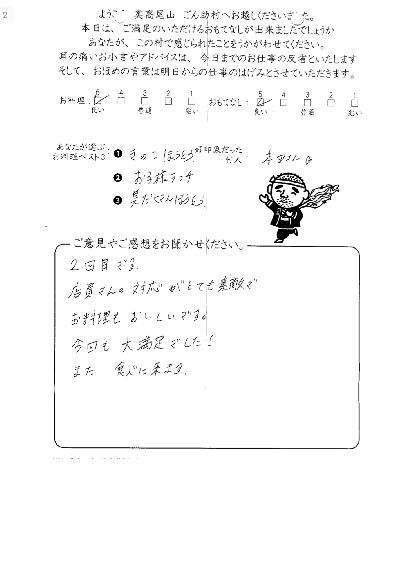 2
ようこそ 奥高尾山 ごん助村へお越しくださいました。
本日は、ご満足のいただけるおもてなしが出来ましたでしょうか
あなたが、この村で感じられたことをうかがわせてください。
耳の痛いお小言やアドバイスは、今日までのお仕事の反省といたします
そして、おほめの言葉は明日からの仕事のはげみとさせていただきます。
お料理: 5 4 3 2 1 おもてなし: 5 4 3 2 1
良い 普通 悪い 良い 普通 悪い
あなたが選ぶ
お料理ベスト3 ❶ きのこほうとう 好印象だった
❷ お子様ランチ
❸ 具だくさんほうとう
ご意見やご感想をお聞かせください。
2回目です。
店員さんの対応がとても素敵で
お料理も おいしいです。
今回も 大満足でした!
また 食べに来ます。